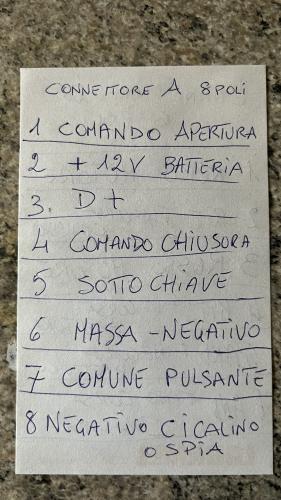 CONNETTORE A 8 POLI
1 COMANDO APERTURA
2 + 12V BATTERIA
3. D+
4 COMANDO CHIUSORA
5 SOTTO CHIAVE
6 MASSA - NEGATIVO
7 COMUNE PULSANTE
8 NEGATIVO CICALINO
O SPIA